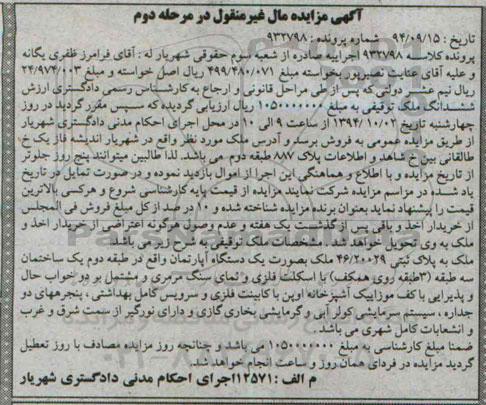 آگهی مزایده مال غیرمنقول در مرحله دوم
تاریخ : ۹۴/۰۹/۱۵ شماره پرونده : ۹۳۲۷۹۸
پرونده کلاسه ۹۳۲۷۹۸ اجراییه صادره از شعبه سوم حقوقی شهریار له : آقای فرامرز ظفری یگانه
و علیه آقای عنایت نصیرپور بخواسته مبلغ ۴۹۹/۴۸۰/۰۷۱ ریال اصل خواسته و مبلغ ۲۴/۹۷۴/۰۰۳
ریال نیم عشر دولتی که پس از طی مراحل قانونی و ارجاع به کارشناس رسمی دادگستری ارزش
ششدانگ ملک توقیفی به مبلغ ۱۰۵۰۰۰۰۰۰۰ ریال ارزیابی گردیده که سپس مقرر گردید در روز
چهارشنبه تاریخ ۱۳۹۴/۱۰/۰۲ از ساعت ۹ الی ۱۰ در محل اجرای احکام مدنی دادگستری شهریار
از طریق مزایده عمومی به فروش برسد و آدرس ملک مورد نظر واقع در شهریار اندیشه فاز یک خ
طالقانی بین خ شاهد و اطلاعات پلاک ۸۸۷ طبقه دوم می باشد. لذا طالبین میتوانند پنج روز جلوتر
از تاریخ مزایده و با اطلاع و هماهنگی این اجرا از اموال بازدید نموده و در صورت تمایل در تاریخ
یاد شده در مراسم مزایده شرکت نمایند مزایده از قیمت پایه کارشناسی شروع و هرکسی بالاترین
قیمت را پیشنهاد نماید بعنوان برنده مزایده شناخته شده و ۱۰ درصد از کل مبلغ فروش فی المجلس
از خریدار اخذ و باقی پس از گذشت یک هفته و عدم وصول هرگونه اعتراضی از خریدار اخذ و
ملک به وی تحویل خواهد شد. مشخصات ملک توقیفی به شرح زیر می باشد.
ملک به پلاک ثبتی ۴۶/۲۰۰۲۹ ملک بصورت یک دستگاه آپارتمان واقع در طبقه دوم یک ساختمان
سه طبقه (۳طبقه روی همکف) با اسکلت فلزی و نمای سنگ مرمری و مشتمل بر دو خواب حال
و پذیرایی با کف موزاییک آشپزخانه اوپن با کابینت فلزی و سرویس کامل بهداشتی ، پنجرههای دو
جداره ، سیستم سرمایشی کولر آبی و گرمایشی بخاری گازی و دارای نورگیر از سمت شرق و غرب
و انشعابات کامل شهری می باشد.
ضمنا مبلغ کارشناسی به مبلغ ۱۰۵۰۰۰۰۰۰۰ می باشد و چنانچه روز مزایده مصادف با روز تعطیل
گردید مزایده در فردای همان روز و ساعت انجام خواهد شد.
م الف : ۱۲۵۷۱ اجرای احکام مدنی دادگستری شهریار